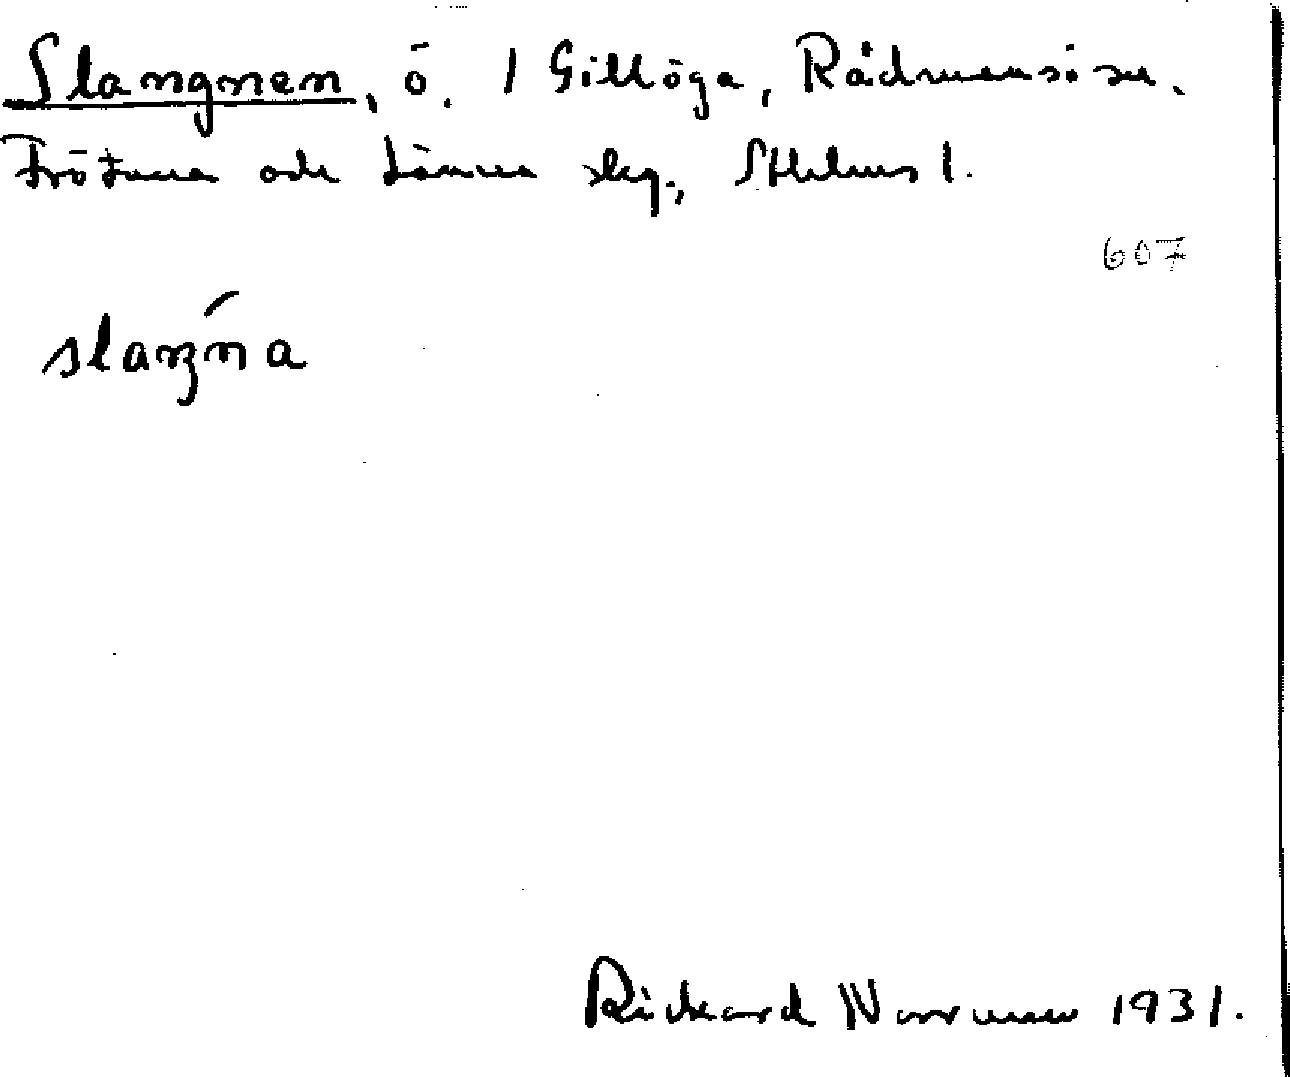 Slangnen, ö. I Gillöga, Rådmansö sn.
Frötuna och Länna skg., Sthlms l.
607
slaŋ́na
Rickard 1931.